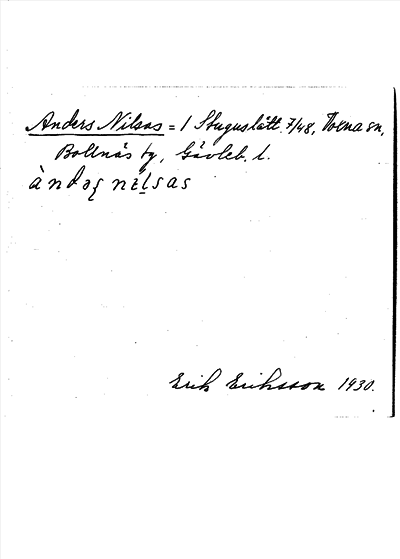 Anders Nilsas = 1 Stuguslått 7/48, Voxna sn,
Bollnäs tg, Gävleb. l.
àndəʂ nɪ̀lsas
Erik Eriksson 1930.